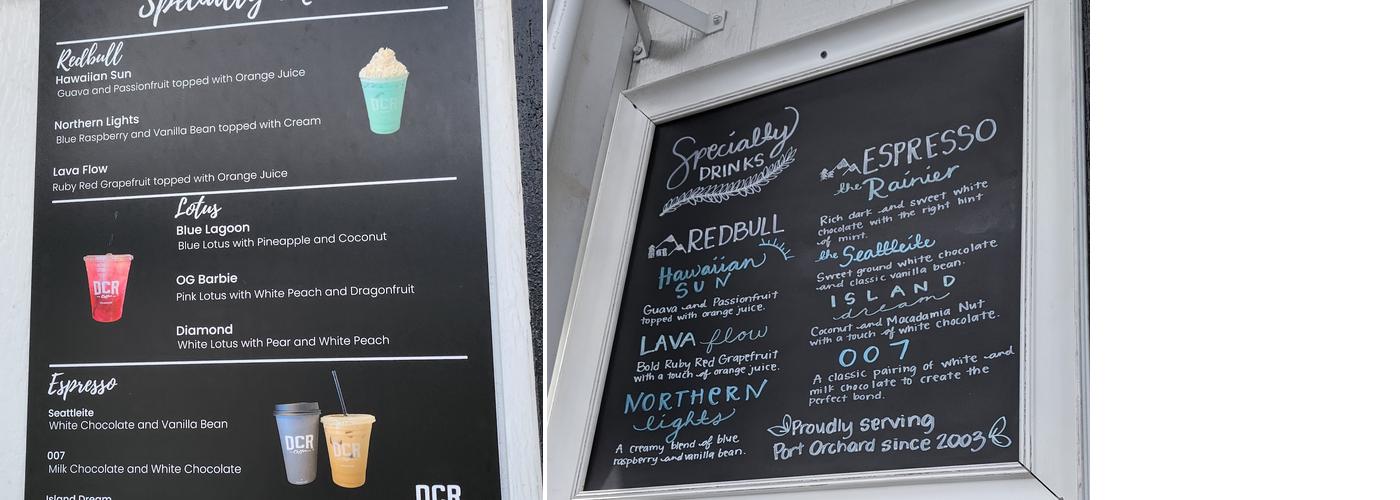 Specialty
Redbull
Hawaiian Sun
Guava and Passionfruit topped with Orange Juice
Northern Lights
Blue Raspberry and Vanilla Bean topped with Cream
Lava Flow
Ruby Red Grapefruit topped with Orange Juice
DCR
Lotus
Blue Lagoon
Blue Lotus with Pineapple and Coconut
OG Barbie
Pink Lotus with White Peach and Dragonfruit
Diamond
White Lotus with Pear and White Peach
DCR
Coffee
Espresso
Seattleite
White Chocolate and Vanilla Bean
007
Milk Chocolate and White Chocolate
Island Dream
DCR
Coffee
DCR
DCR
Specialty
DRINKS
REDBULL
Hawaiian
SUN
Guava and Passionfruit
topped with orange juice.
LAVA flow
Bold Ruby Red Grapefruit
with a touch of orange juice.
NORTHERN
lights
A creamy blend of blue
raspberry and vanilla bean.
ESPRESSO
the Rainier
Rich dark and sweet white
chocolate with the right hint
of mint.
the Seattleite
Sweet ground white chocolate
and classic vanilla bean.
ISLAND
dream
Coconut and Macadamia Nut
with a touch of white chocolate.
007
A classic pairing of white and
milk chocolate to create the
perfect bond.
Proudly serving
Port Orchard since 2003